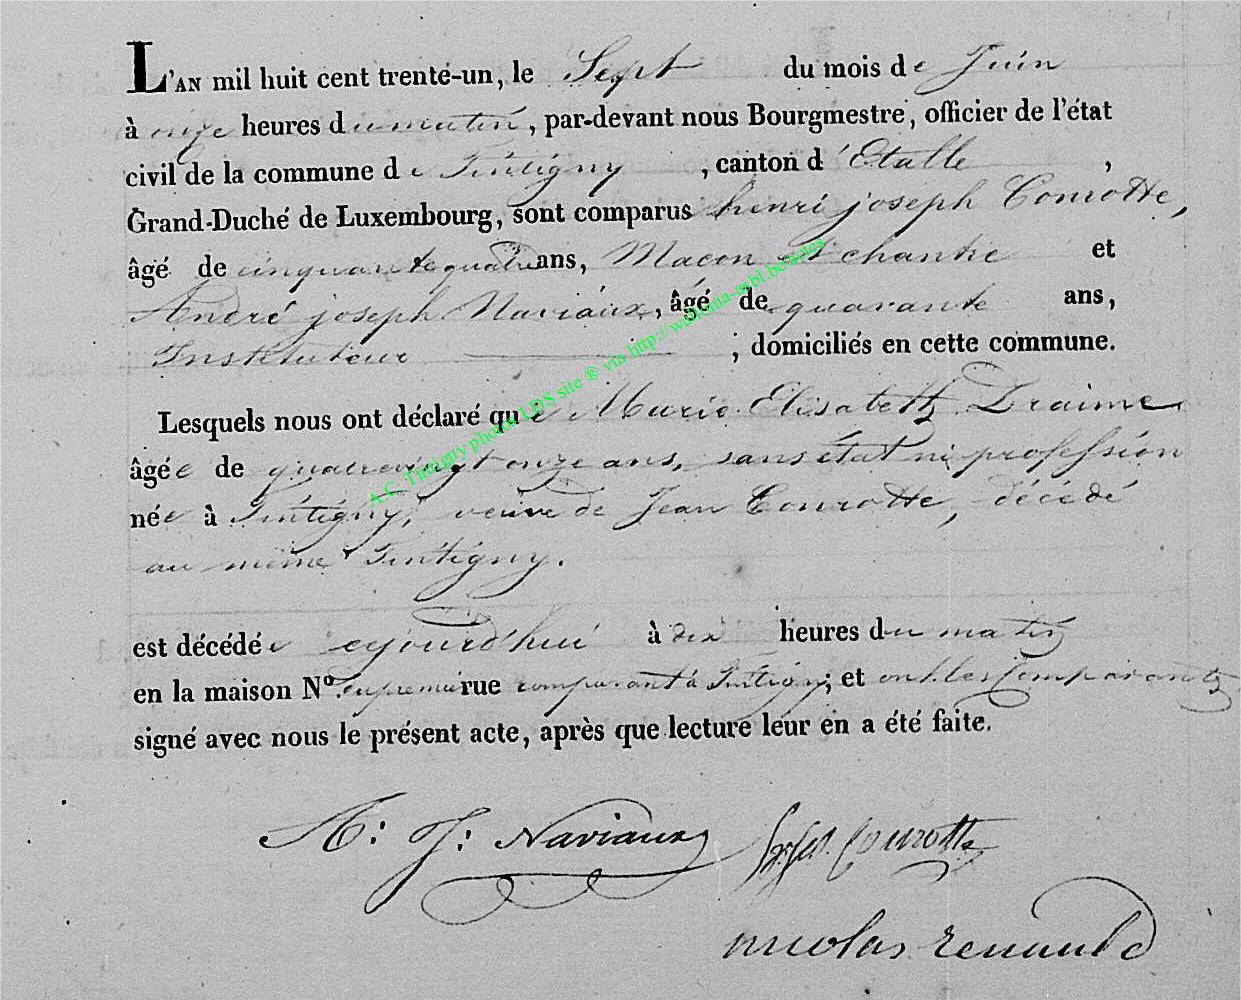 L'AN mil huit cent trente-un, le Sept du mois de Juin
à onze heures du matin, par-devant nous Bourgmestre, officier de l'état
civil de la commune de Tintigny, canton d'Etalle,
Grand-Duché de Luxembourg, sont comparus henri joseph Conrotte,
âgé de cinquante quatre ans, Macon et chantre et
André joseph Naviaux, âgé de quarante ans,
Instituteur ; domiciliés en cette commune.
Lesquels nous ont déclaré que Marie Elisabeth Draime
âgée de quatrevingt onze ans, sans état ni profession
née à Tintigny, veuve de Jean Conrotte, décédé
au même Tintigny.
est décédée ejourd'hui à dix heures du matin
en la maison No. du premier rue comparant à Tintigny; et ont les comparants
signé avec nous le présent acte, après que lecture leur en a été faite.
A: J: Naviaux Conrotte
nicolas renauld
A.C. Tintigny photos LDS site ® via http://wallonia-asbl.be/actes